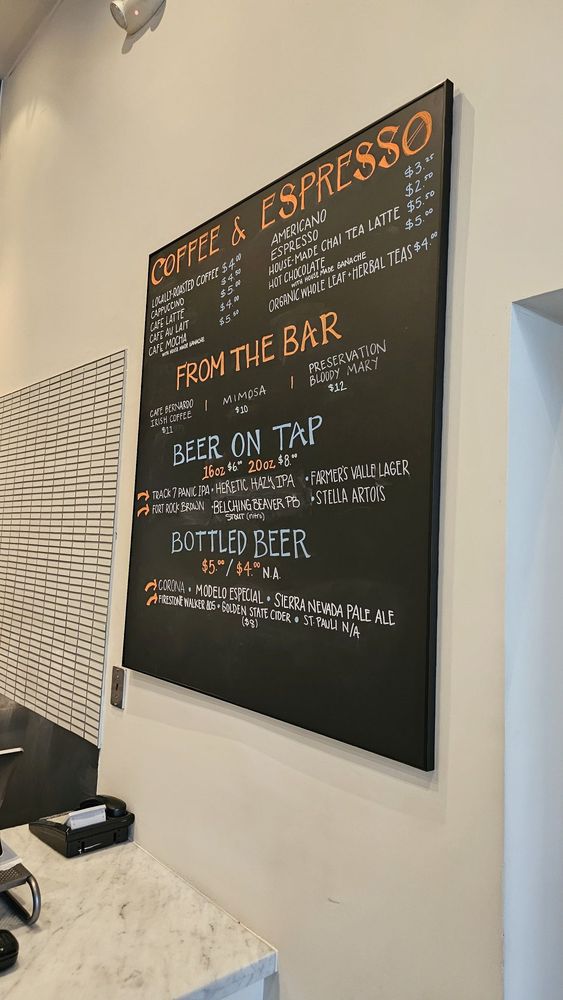 COFFEE & ESPRESSO
LOCALLY-ROASTED COFFEE $4.00
CAPPUCCINO $4.50
CAFE LATTE $5.00
CAFE AU LAIT $4.00
CAFE MOCHA $5.50
WITH HOUSE MADE GANACHE
AMERICANO $3.25
ESPRESSO $2.50
HOUSE-MADE CHAI TEA LATTE $5.50
HOT CHOCOLATE $5.00
WITH HOUSE MADE GANACHE
ORGANIC WHOLE LEAF + HERBAL TEAS $4.00
FROM THE BAR
CAFE BERNARDO
IRISH COFFEE
$11
| MIMOSA |
$10
PRESERVATION
BLOODY MARY
$12
BEER ON TAP
16oz $6.00 20oz $8.00
TRACK 7 PANIC IPA • HERETIC HAZY IPA • FARMER'S VALLE LAGER
FORT ROCK BROWN • BELCHING BEAVER PB • STELLA ARTOIS
STOUT (nitro)
BOTTLED BEER
$5.00 / $4.00 N.A.
CORONA • MODELO ESPECIAL • SIERRA NEVADA PALE ALE
FIRESTONE WALKER 805 • GOLDEN STATE CIDER • ST. PAULI N/A
($8)